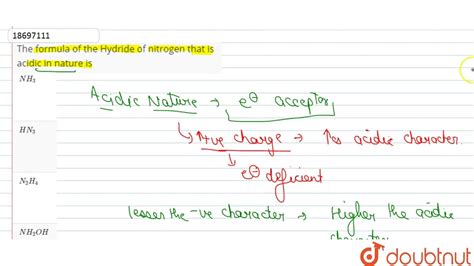 18697111
The formula of the Hydride of nitrogen that is
acidic in nature is
NH₃
Acidic Nature → e⊖ acceptor
HN₃
↳ ↑ +ve charge → ↑es acidic character.
↓
e⊖ deficient
N₂H₄
lesser the -ve character → Higher the acidic
character
NH₂OH
doubtnut